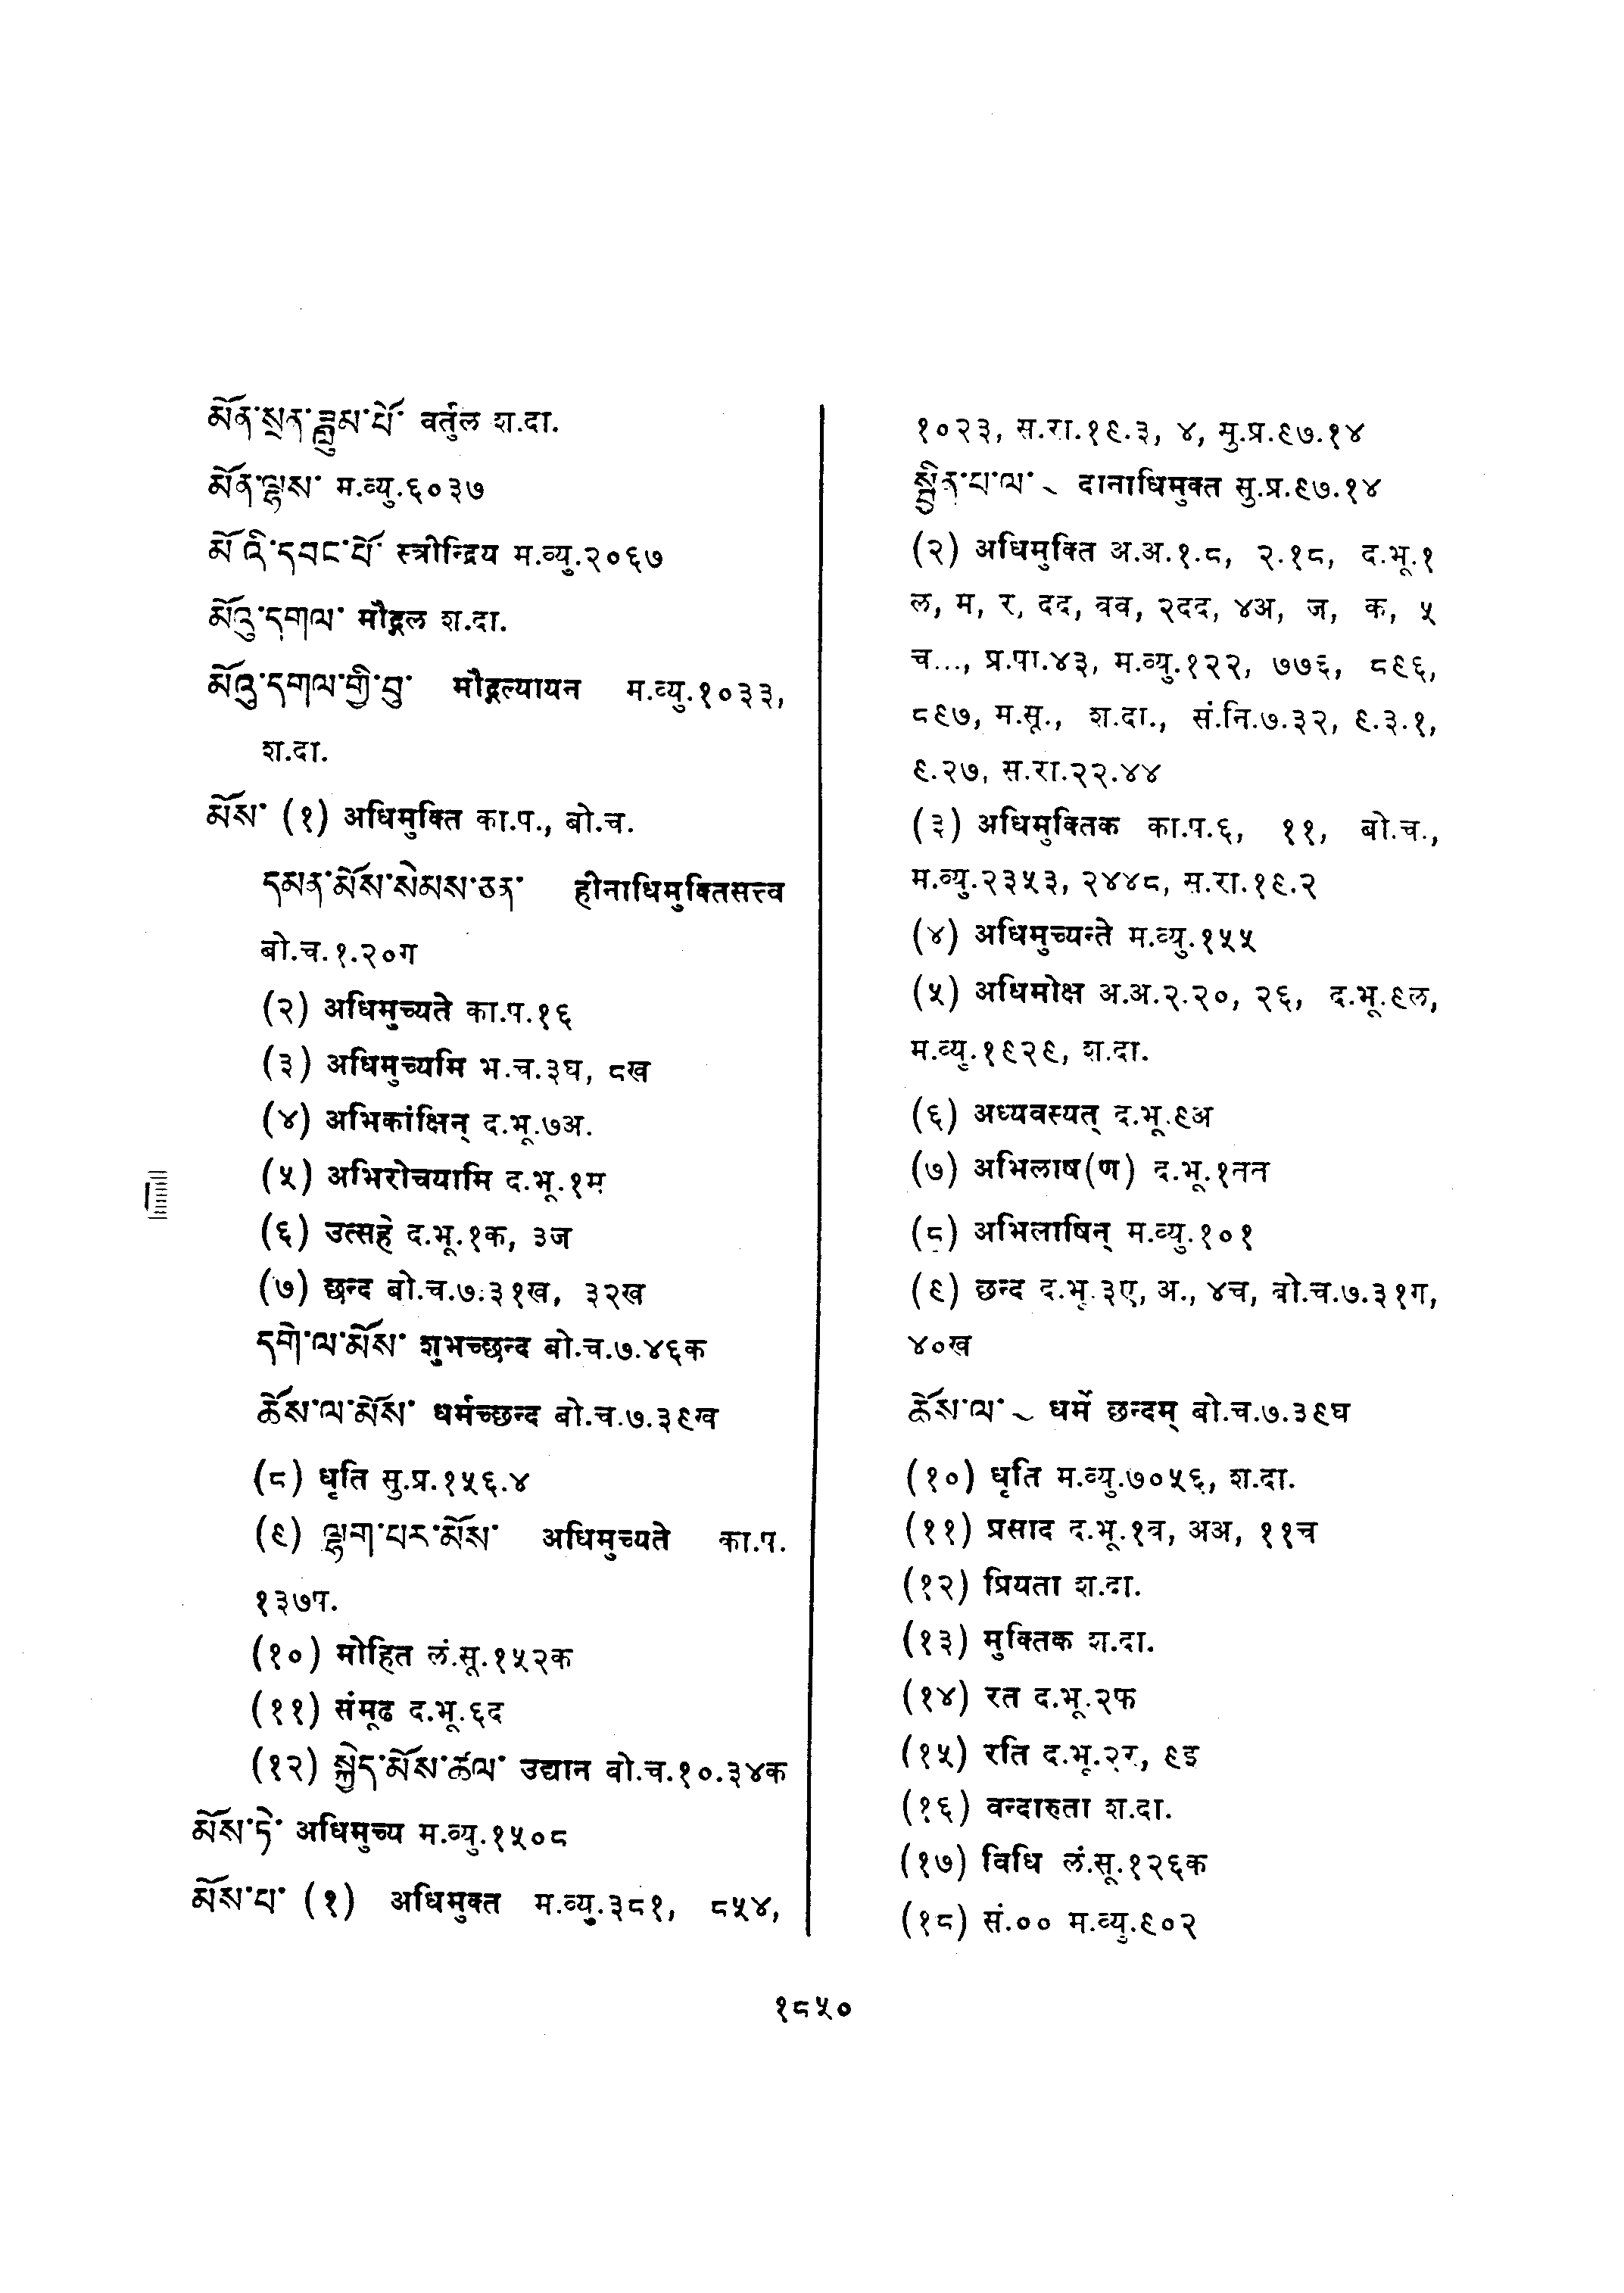 མོན་སྲན་ཟླུམ་པོ་ वर्तुल श.दा.
མོན་ལྷས་ म.व्यु.६०३७
མོ་འི་དབང་པོ་ स्त्रीन्द्रिय म.व्यु.२०६७
མོའུ་དགལ་ मौद्गल श.दा.
མོའུ་དགལ་གྱི་བུ་ मौद्गल्यायन म.व्यु.१०३३,
श.दा.
མོས་ (१) अधिमुक्ति का.प., बो.च.
དམན་མོས་སེམས་ཅན་ हीनाधिमुक्तिसत्त्व
बो.च.१.२०ग
(२) अधिमुच्यते का.प.१६
(३) अधिमुच्यमि भ.च.३घ, ८ख
(४) अभिकांक्षिन् द.भू.७अ.
(५) अभिरोचयामि द.भू.१म
(६) उत्सहे द.भू.१क, ३ज
(७) छन्द बो.च.७.३१ख, ३२ख
དགེ་ལ་མོས་ शुभच्छन्द बो.च.७.४६क
ཆོས་ལ་མོས་ धर्मच्छन्द बो.च.७.३९ख
(८) धृति सु.प्र.१५६.४
(९) ལྷག་པར་མོས་ अधिमुच्यते का.प.
१३७प.
(१०) मोहित लं.सू.१५२क
(११) संमूढ द.भू.६द
(१२) སྐྱེད་མོས་ཚལ་ उद्यान बो.च.१०.३४क
མོས་ཏེ་ अधिमुच्य म.व्यु.१५०८
མོས་པ་ (१) अधिमुक्त म.व्यु.३८१, ८५४,
१०२३, स.रा.१९.३, ४, सु.प्र.९७.१४
སྦྱིན་པ་ལ་ ~ दानाधिमुक्त सु.प्र.९७.१४
(२) अधिमुक्ति अ.अ.१.८, २.१८, द.भू.१
ल, म, र, दद, वव, २दद, ४अ, ज, क, ५
च..., प्र.पा.४३, म.व्यु.१२२, ७७६, ८९६,
८९७, म.सू., श.दा., सं.नि.७.३२, ९.३.१,
९.२७, स.रा.२२.४४
(३) अधिमुक्तिक का.प.६, ११, बो.च.,
म.व्यु.२३५३, २४४८, स.रा.१९.२
(४) अधिमुच्यन्ते म.व्यु.१५५
(५) अधिमोक्ष अ.अ.२.२०, २६, द.भू.९ल,
म.व्यु.१९२९, श.दा.
(६) अध्यवस्यत् द.भू.९अ
(७) अभिलाष(ण) द.भू.१नन
(८) अभिलाषिन् म.व्यु.१०१
(९) छन्द द.भू.३ए, अ., ४च, बो.च.७.३१ग,
४०ख
ཆོས་ལ་ ~ धर्मे छन्दम् बो.च.७.३९घ
(१०) धृति म.व्यु.७०५६, श.दा.
(११) प्रसाद द.भू.१व, अअ, ११च
(१२) प्रियता श.दा.
(१३) मुक्तिक श.दा.
(१४) रत द.भू.२फ
(१५) रति द.भू.२र, ९इ
(१६) वन्दारुता श.दा.
(१७) विधि लं.सू.१२६क
(१८) सं.०० म.व्यु.९०२
१८५०